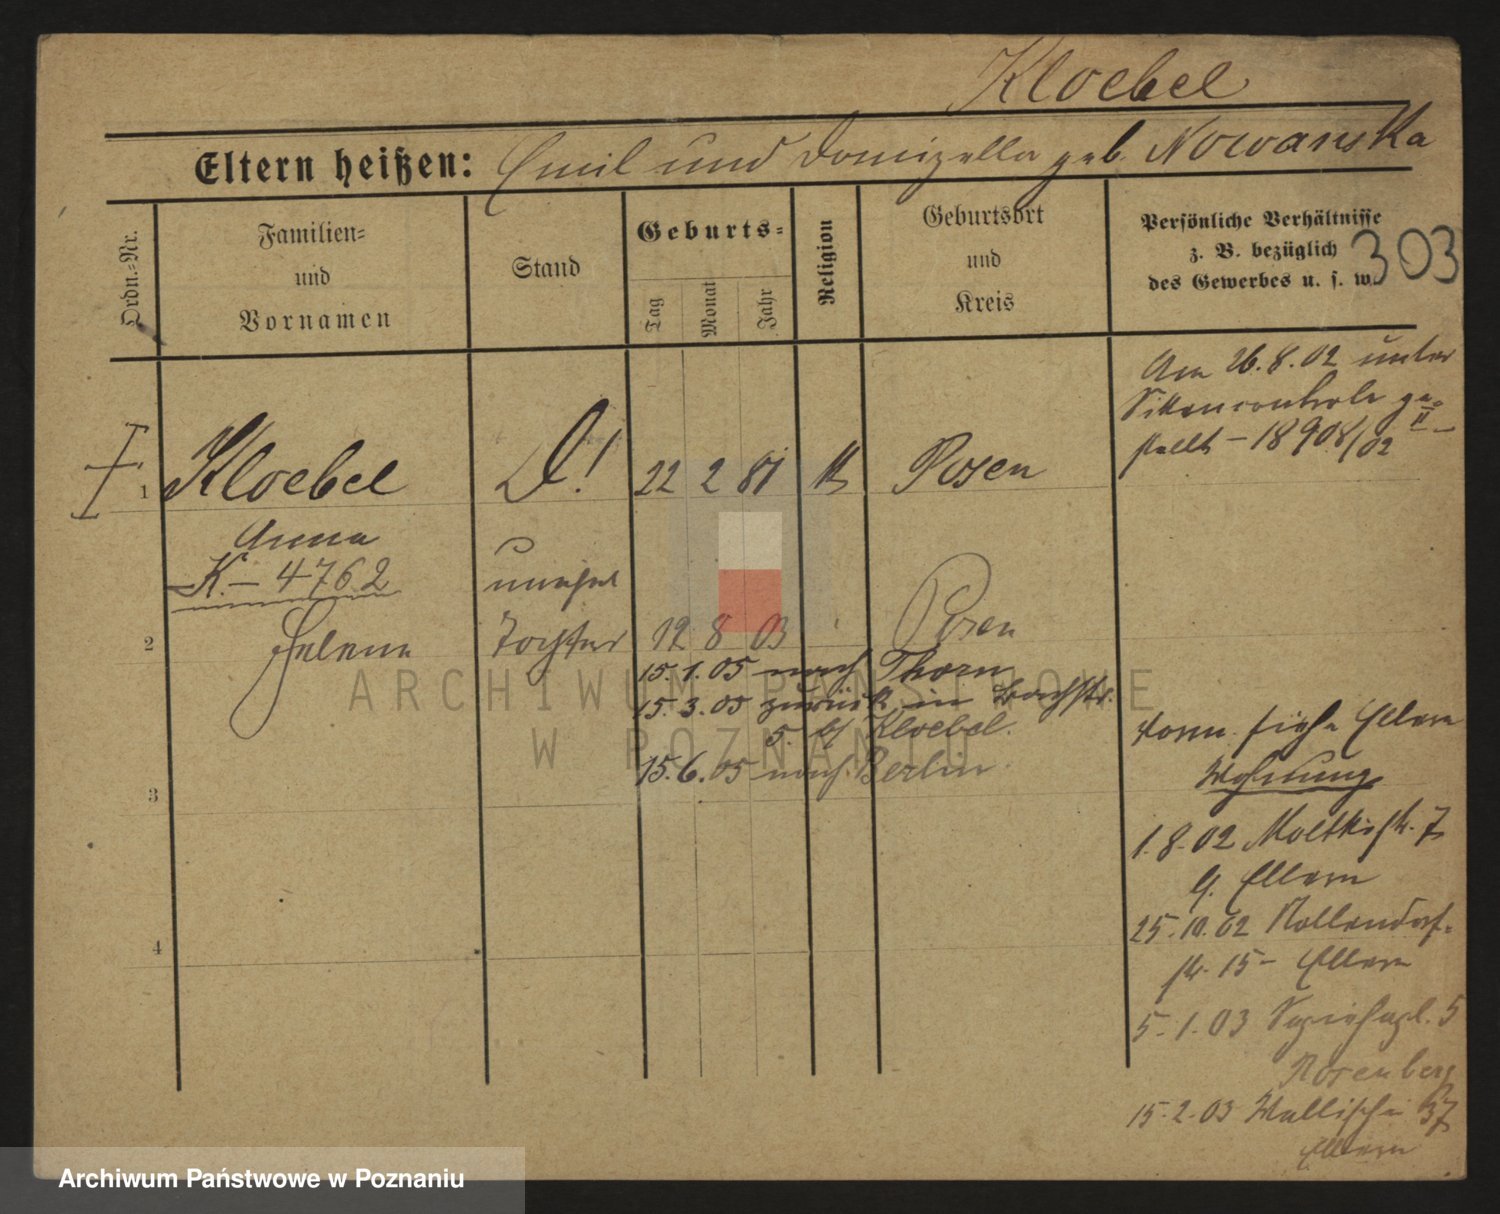 Kloebel
Eltern heißen: Emil und Domizella geb. Nowanska
Ordn.=Nr.
Familien=
und
Vornamen
Stand
Geburts=
Tag
Monat
Jahr
Religion
Geburtsort
und
Kreis
Persönliche Verhältnisse
z. B. bezüglich
des Gewerbes u. s. w.
303
Am 26.8.02 unter
Sittencontrole ge=
stellt – 18908/02
II
1 Kloebel D! 22 2 81 k Posen
Anna
K. – 4762
unehel
2 Helene Tochter 12 8 03 Posen
15.1.05 nach Thorn
15.3.05 zurück in Bachstr.
5. bei Kloebel.
15.6.05 nach Berlin
3
4
vorm. siehe Eltern
Wohnung
1.8.02 Moltkestr. 7
Eltern
25.10.02 Nollendorf=
str. 15 – Eltern
5.1.03 Sapiehapl. 5
Rosenberg
15.2.03 Wallischei 37
Eltern
ARCHIWUM PAŃSTWOWE
W POZNANIU
Archiwum Państwowe w Poznaniu